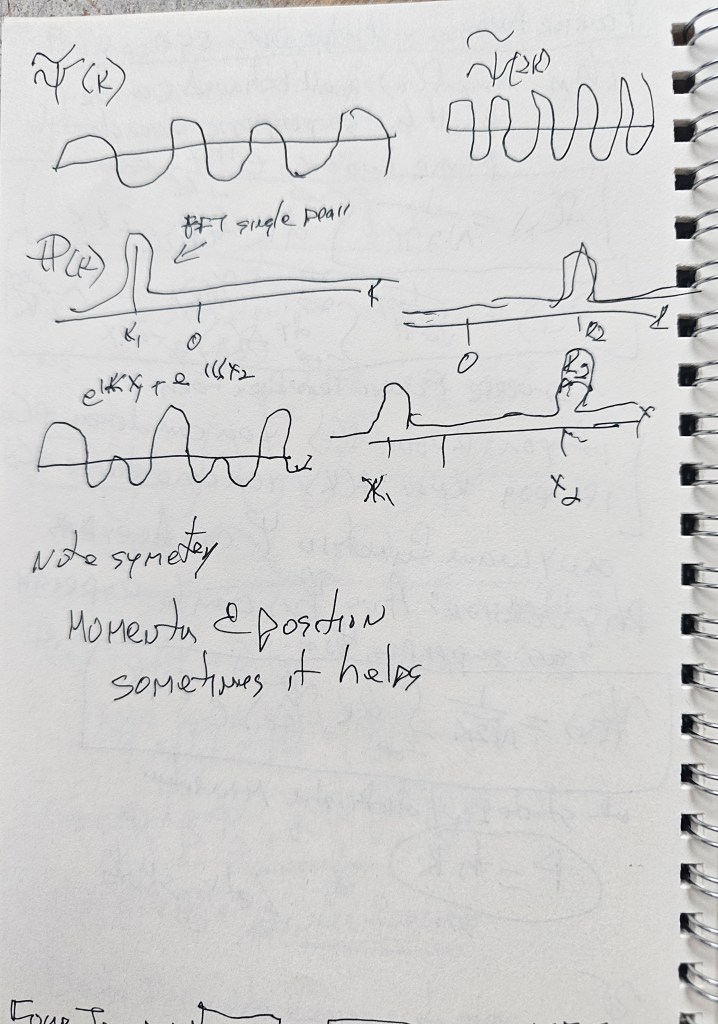 Ψ̃(k)
Ψ̃(2k)
single
ℙ(k)
K
K₁
0
0
k2
e^ikx₁ + e^ikx₂
X₁
x₂
x
Note symetry
Momentu & position
sometimes it helps